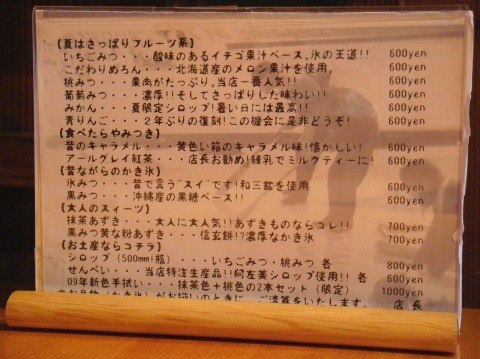 【夏はさっぱりフルーツ系】
いちごみつ・・・酸味のあるイチゴ果汁ベース。氷の王道!! 600yen
こだわりめろん・・・北海道産のメロン果汁を使用。 600yen
桃みつ・・・果肉がたっぷり。当店一番人気!! 600yen
葡萄みつ・・・濃厚!!そしてさっぱりした味わい!! 600yen
みかん・・・夏限定シロップ!暑い日には最高!! 600yen
青りんご・・・2年ぶりの復刻!この機会に是非どうぞ! 600yen
【食べたらやみつき】
昔のキャラメル・・・黄色い箱のキャラメル味!懐かしい! 600yen
アールグレイ紅茶・・・店長お勧め!練乳でミルクティーに! 600yen
【昔ながらのかき氷】
氷みつ・・・昔で言う"スイ"です!和三盆を使用 600yen
黒みつ・・・沖縄産の黒糖ベース!! 600yen
【大人のスィーツ】
抹茶あずき・・・大人に大人気!!あずきものならコレ!! 700yen
黒みつ黄な粉あずき・・・信玄餅!?濃厚なかき氷 700yen
【お土産ならコチラ】
シロップ(500mm瓶)・・・いちごみつ・桃みつ 各 800yen
せんべい・・・当店特注生産品!!阿左美シロップ使用!! 各 600yen
09年新色手拭い・・・抹茶色+桃色の2本セット(限定) 1000yen
(かき氷)がお揃いのときに、ご清算をいたします。 店長